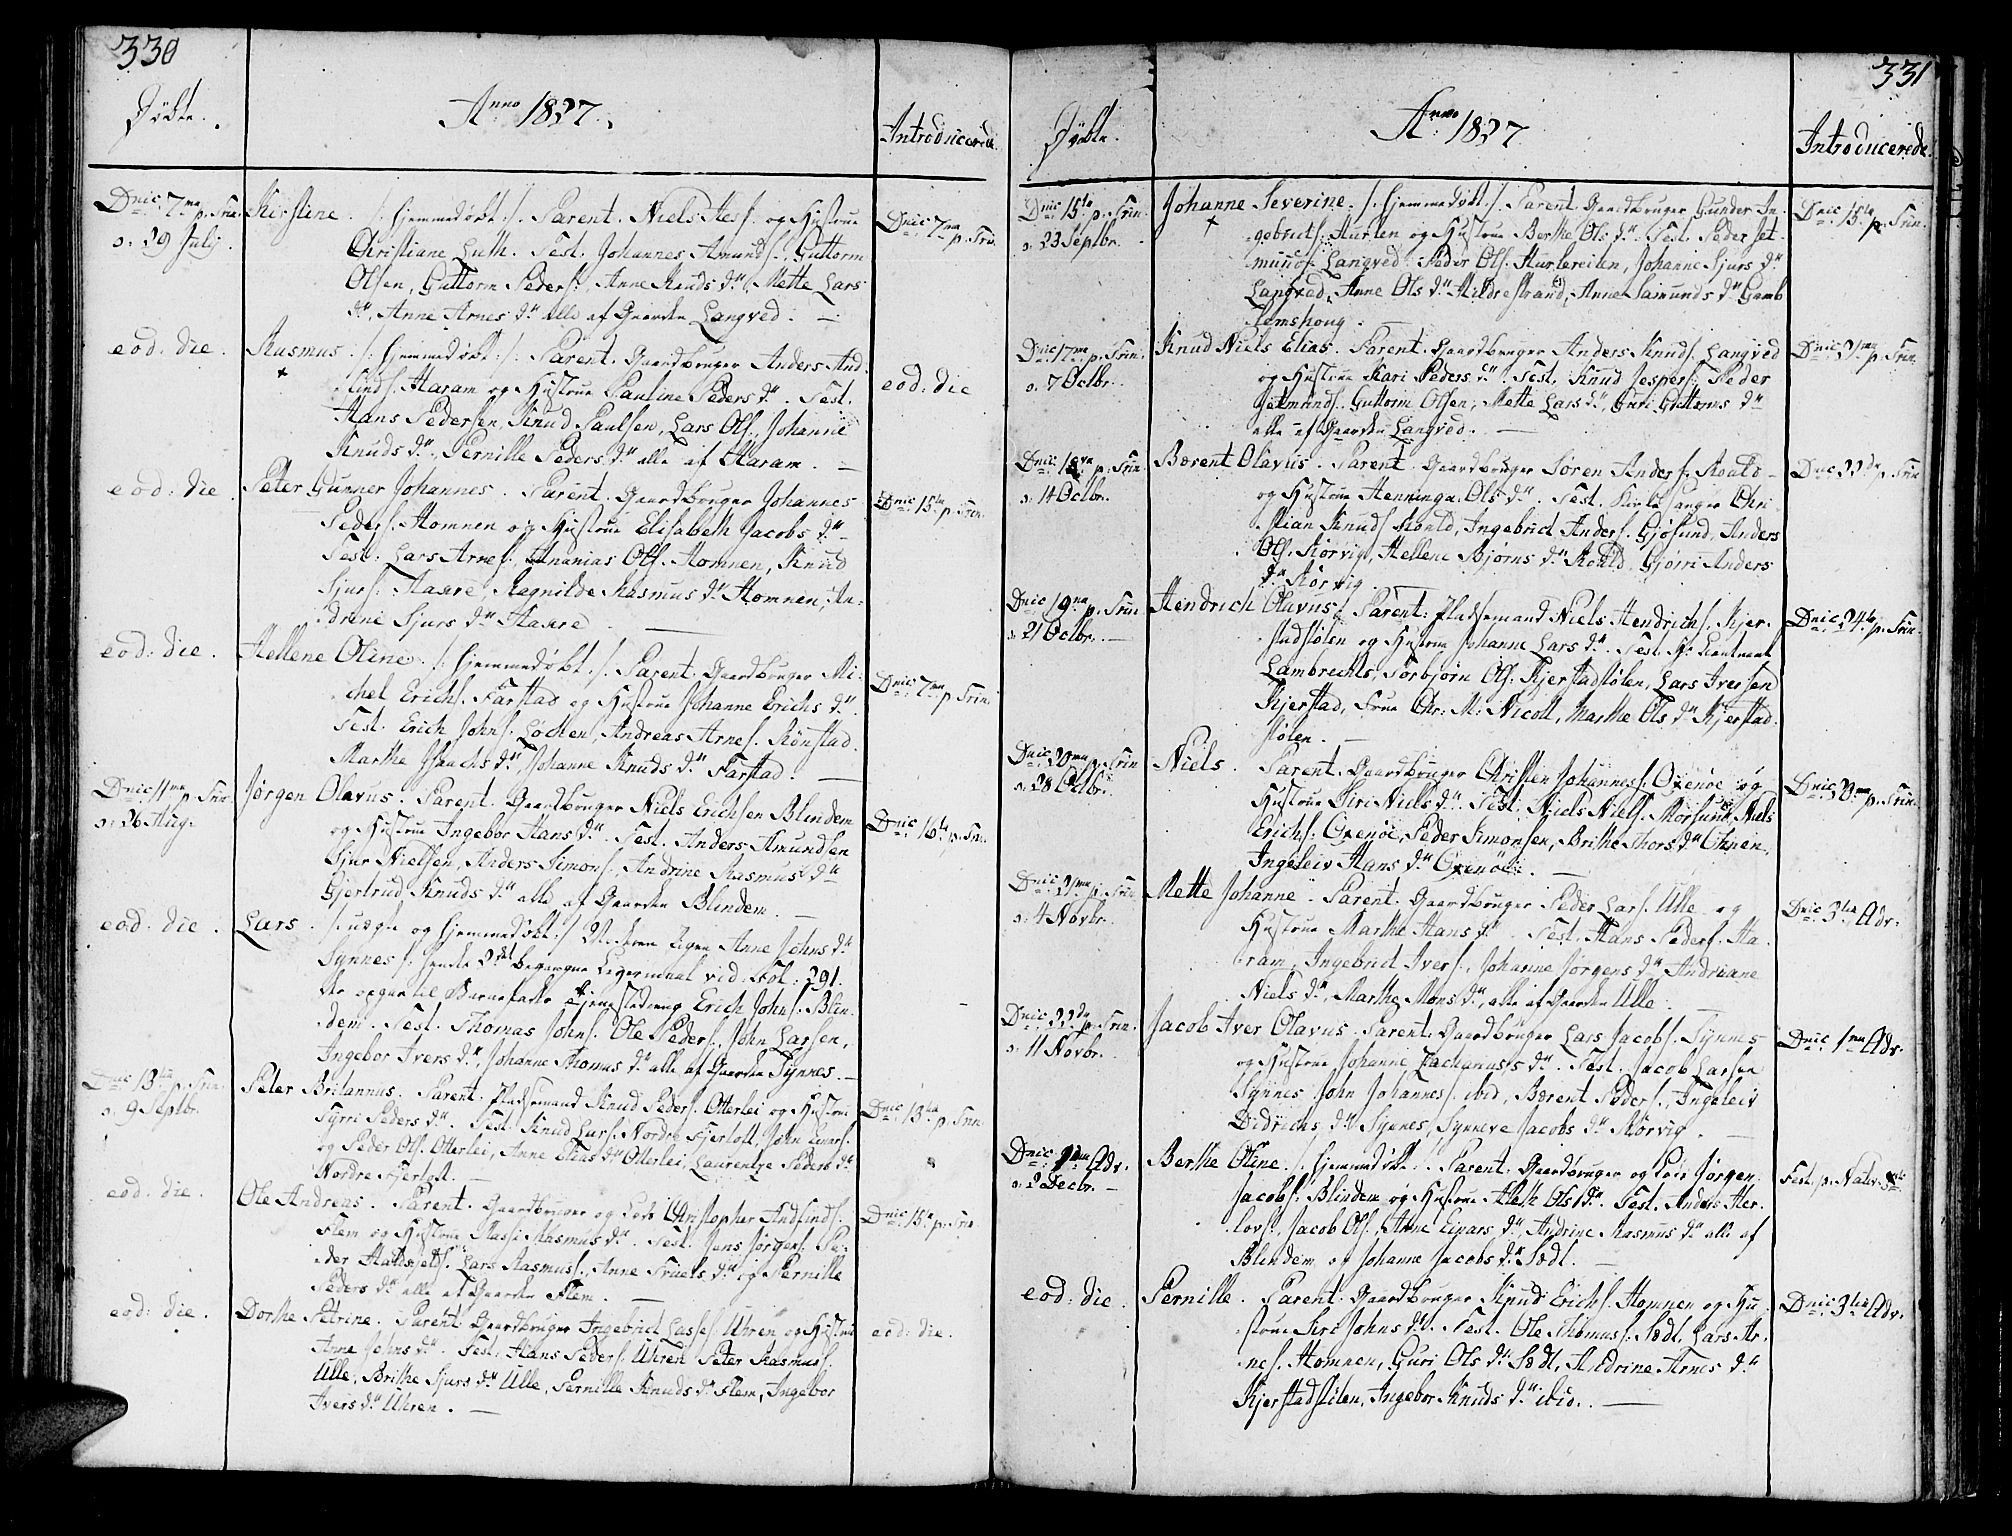 330
Døbte.
Anno 1827.
Introducerede.
Dnic. 7ma p. Trin.
d. 29 Julj.
Kirstine. /: hjemmedøbt :/. Parent. Niels Aes/: og Hustrue
Christiane Luth. Test. Johannes Amunds/:, Guttorm
Olsen, Guttorm Peders/:, Anne Knuds dr, Mette Lars
dr, Anne Arnes dr alle af Gaarden Langved.
Dnic. 7ma p. Trin.
eod: die.
Rasmus. /: hjemmedøbt :/. Parent. Gaardbruger Anders And.
+
finds/: Haram og Hustrue Pauline Peders dr. Test.
Hans Pedersen, Knud Paulsen, Lars Ols/:, Johanne
Knuds dr, Pernille Peders dr alle af Haram.
eod: die
eod: die.
Peter Gunner Johannes. Parent. Gaardbruger Johannes
Peders/: Homnen og Hustrue Elisabeth Jacobs dr
Test. Lars Arnes/:, Ananias Ols/: Homnen, Knud
Sjurs/: Aakre, Ragnilde Rasmus dr Homnen, An-
drine Sjurs dr Aakre.
Dnic. 15ta p. Trin.
eod: die.
Hellene Oline. /: hjemmedøbt :/. Parent. Gaardbruger Mi-
chel Erichs/: Farstad og Hustrue Johanne Erichs dr.
Test. Erich Johns/: Lochen, Andreas Arnes/: Rønstad.
Marthe Isaachs dr, Johanne Knuds dr Farstad.
Dnic. 7ma p. Trin.
Dnic. 11ma p. Trin.
d. 26 Aug.
Jørgen Olavus. Parent. Gaardbruger Niels Erichsen Blindem
og Hustrue Ingebor Hans dr. Test. Anders Amundsen
Sjur Nielsen, Anders Simons/:, Andrine Rasmus dr
Gjertrud Knuds dr alle af Gaarden Blindem.
Dnic. 16ta p. Trin.
eod: die.
Lars. /: uægte og hjemmedøbt :/ Moderen Pigen Anne Johns dr
Synnes/: hendes 2det begangne Leiermaal vid. Fol: 291.
til Barnefader Erich Johns/: Blin-
dem. Test. Thomas Johns/: Ole Peders/:, John Larsen,
Ingebor Ivers dr, Johanne Thomas dr alle af Gaarden Synnes.
Dnic. 13tia p. Trin.
d. 9 Septbr.
Peter Britannus. Parent. Pladsemand Knud Peders/: Otterlei og Hustrue
Tyrri Peders dr. Test. Knud Lars/: Nordre Fjertoft, John Einars/:
og Peder Ols/: Otterlei, Anne Elias dr Otterlei, Laurentze Peders dr
Nordre Fjertoft.
Dnic. 13tia p. Trin.
eod: die.
Ole Andreas. Parent. Gaardbruger og Lods Christopher Andfinds/:
Flem og Hustrue Massi Rasmus dr. Test. Jens Jørgens/: Pe-
der Lars Rasmus/:, Anne Truels dr og Pernille
Peders dr alle af Gaarden Flem.
Dnic. 15ta p. Trin.
eod: die.
Dorthe Petrine. Parent. Gaardbruger Ingebrict Lasses/: Uhren og Hustrue
Anne Johns dr. Test. Hans Peders/: Uhren Peter Rasmus/:
Ulle, Brithe Sjurs dr Ulle, Pernille Knuds dr Flem, Ingebor
Ivers dr Uhren.
eod: die.
331
Døbte.
Anno 1827
Introducerede.
Dnic. 15ta p. Trin.
d. 23 Septbr.
Johanne Severine. /: hjemmedøbt :/. Parent. Gaardbruger Gunder In-
+
gebricts/: Hurlen og Hustrue Berthe Ols dr. Test. Peder Jet-
munds/: Langved. Peder Ols/: Hurlereiten, Johanne Sjurs dr
Langved, Anne Ols dr Hildrestrand, Anne Samunds dr Gamb
lemshoug.
Dnic. 15ta p. Trin.
Dnic. 17ma p. Trin.
d. 7 Octbr.
Knud Niels Elias. Parent. Gaardbruger Anders Knuds/: Langved
og Hustrue Kari Peders dr. Test. Knud Jespers/: Peder
Jetmunds/: Guttorm Olsen, Mette Lars dr, Guri Guttorms dr
alle af Gaarden Langved.
Dnic. 21ma p. Trin.
Dnic. 18va p. Trin.
d. 14 Octbr.
Bærent Olavus. Parent. Gaardbruger Søren Anders/: Roald
og Hustrue Henninga Ols dr. Test. Kirkesanger Chri-
stian Knuds/: Roald, Ingebrict Anders/: Gjøsund, Anders
Ols/: Rørvig, Hellene Bjørns dr Roald, Gjørri Anders
dr Rørvig.
Dnic. 22da p. Trin.
Dnic. 19na p. Trin.
d. 21 Octbr.
Hendrich Olavus. Parent. Pladsemand Niels Hendrichs/: Kjer-
stadstølen og Hustrue Johanne Lars dr. Test. Hr. Lieutnant
Lambrechts, Torbjørn Ols/: Kjerstadstølen, Lars Iversen
Kjerstad, Frue Chr: M: Nicoll, Marthe Ols dr Kjerstad-
stølen.
Dnic. 24ta p. Trin.
Dnic. 20ma p. Trin
d. 28 Octbr.
Niels. Parent. Gaardbruger Christen Johanness/: Oxenøe og
Hustrue Siri Niels dr. Test. Niels Niels/: Morsund, Niels
Erichs/: Oxenöe, Peder Simonsen, Brithe Thors dr Ohnen,
Ingeleiv Hans dr Oxenöe.
Dnic. 20ma p. Trin.
Dnic. 21ma p. Trin.
d. 4 Novbr.
Mette Johanne. Parent. Gaardbruger Peder Lars/: Ulle og
Hustrue Marthe Hans dr. Test. Hans Peders/: Ha-
ram, Ingebrict Ivers/:, Johanne Jørgens dr Andriane
Niels dr, Marthe Mons dr, alle af Gaarden Ulle.
Dnic. 3tia Adv.
Dnic. 22da p. Trin.
d. 11 Novbr.
Jacob Iver Olavus. Parent. Gaardbruger Lars Jacobs/: Synnes
og Hustrue Johanne Zacharias's dr. Test. Jacob Larsen
Synnes John Johannes/: ibid, Bærent Peders/:, Ingeleiv
Didrichs dr Synnes, Synneve Jacobs dr Rörvig.
Dnic. 1ma Adv.
Dnic. 1ma Adv.
d. 2 Decbr.
Berthe Oline. /: hjemmedøbt :/. Parent. Gaardbruger og Lods Jørgen
Jacobs/: Blindem og Hustrue Aleth Ols dr. Test. Anders Her-
lovs/:, Jacob Ols/:, Anne Einars dr, Andrine Rasmus dr alle af
Blindem og Johanne Jacobs dr Rødl.
Fest. p. Nativ.
eod: die.
Pernille. Parent. Gaardbruger Knud Erichs/: Homnen og Hu-
strue Siri Johns dr. Test. Ole Rasmus/: Rødl, Lars Ar-
nes/: Homnen, Guri Ols dr Rødl, Andrine Arnes dr
Kjerstadstølen, Ingebor Knuds dr ibid.
Dnic. 3tia Adv.